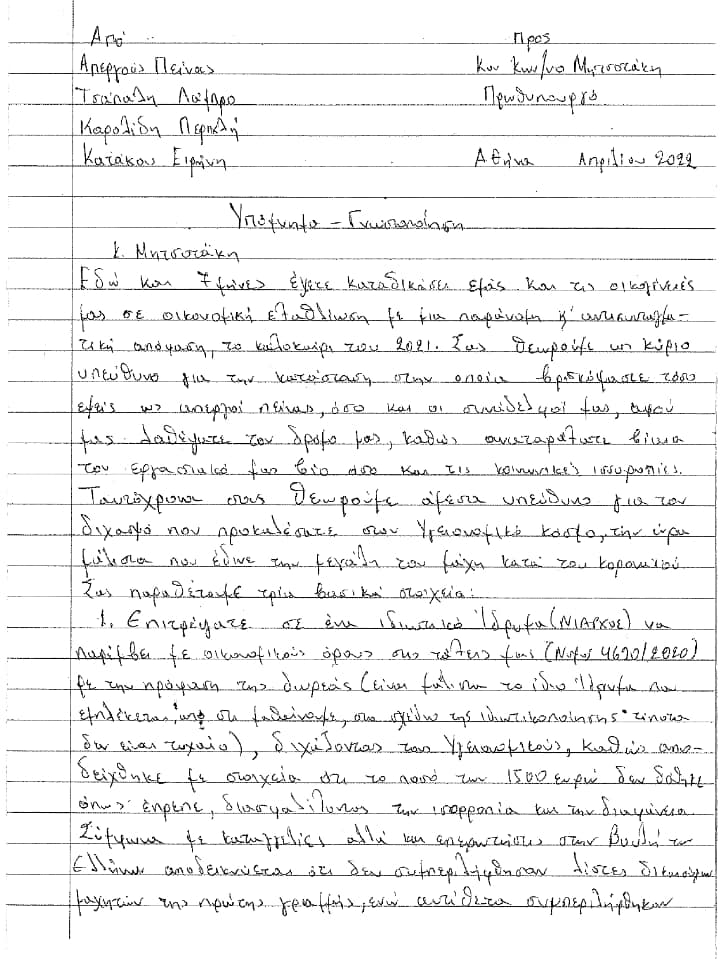 Από
Προς
Απεργούς Πείνας
Κον Κων/νο Μητσοτάκη
Τσάπαλη Λάμπρο
Πρωθυπουργό
Καρολίδη Περικλή
Κατάκου Ειρήνη
Αθήνα Απριλίου 2022
Υπόμνημα - Γνωστοποίηση
κ. Μητσοτάκη
Εδώ και 7 μήνες έχετε καταδικάσει εμάς και τις οικογένειές
μας σε οικονομική εξαθλίωση με μια παράνομη κ' αντισυνταγμα-
τική απόφαση, το καλοκαίρι του 2021. Σας θεωρούμε ως κύριο
υπεύθυνο για την κατάσταση στην οποία βρισκόμαστε τόσο
εμείς ως απεργοί πείνας, όσο και οι συνάδελφοί μας, αφού
μας διαθέσατε τον δρόμο μας, καθώς αναταράξατε βίαια
τον εργασιακό μας βίο όσο και τις κοινωνικές ισορροπίες.
Ταυτόχρονα σας θεωρούμε άμεσα υπεύθυνο για τον
διχασμό που προκαλέσατε στον Υγειονομικό κόσμο, την ώρα
μάλιστα που έδινε την μεγάλη του μάχη κατά του κορονοϊού
Σας παραθέτουμε τρία βασικά στοιχεία:
1. Επιτρέψατε σε ένα ιδιωτικό Ίδρυμα (ΝΙΑΡΧΟΣ) να
παρέμβει με οικονομικούς όρους στις τάξεις μας (Νόμος 4690/2020)
με την πρόφαση της δωρεάς (είναι μάλιστα το ίδιο Ίδρυμα που
εμπλέκεται, απ' ότι μαθαίνουμε, στο σχέδιο της ιδιωτικοποίησης· τίποτα
δεν είναι τυχαίο), διχάζοντας τους Υγειονομικούς, καθώς απο-
δείχθηκε με στοιχεία ότι το ποσό των 1500 ευρώ δεν δόθηκε
όπως έπρεπε, διασφαλίζοντας την ισορροπία και την διαφάνεια
Σύμφωνα με καταγγελίες αλλά και επερωτήσεις στην Βουλή των
Ελλήνων αποδεικνύεται ότι δεν συμπεριλήφθησαν λίστες δικαιούχων
μαχητών της πρώτης γραμμής, ενώ αντίθετα συμπεριλήφθηκαν